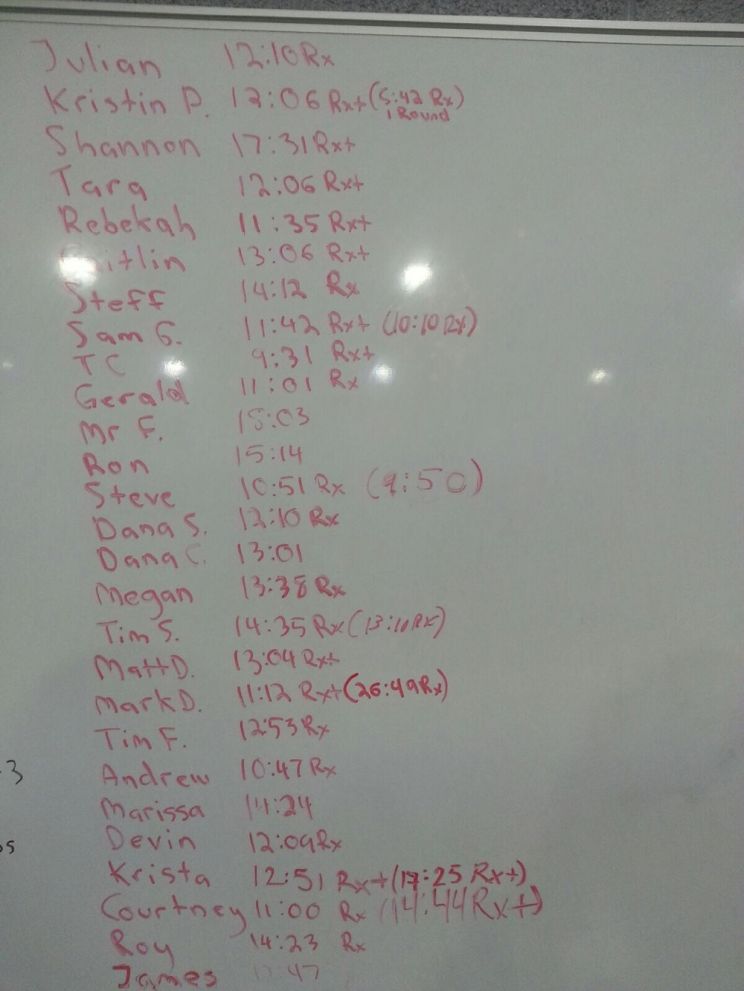 Julian 12:10 Rx
Kristin P. 12:06 Rx+ (5:42 Rx)
1 Round
Shannon 17:31 Rx+
Tara 12:06 Rx+
Rebekah 11:35 Rx+
13:06 Rx+
Steff 14:12 Rx
Sam G. 11:42 Rx+ (10:10 Rx)
TC 9:31 Rx+
Gerald 11:01 Rx
Mr F. 18:03
Ron 15:14
Steve 10:51 Rx (9:50)
Dana S. 12:10 Rx
Dana C. 13:01
Megan 13:38 Rx
Tim S. 14:35 Rx (13:10 Rx)
Matt D. 13:04 Rx+
Mark D. 11:12 Rx+ (26:49 Rx)
Tim F. 12:53 Rx
3
Andrew 10:47 Rx
Marissa 14:24
Devin 12:09 Rx
Krista 12:51 Rx+ (17:25 Rx+)
Courtney 11:00 Rx (14:44 Rx+)
Roy 14:23 Rx
James